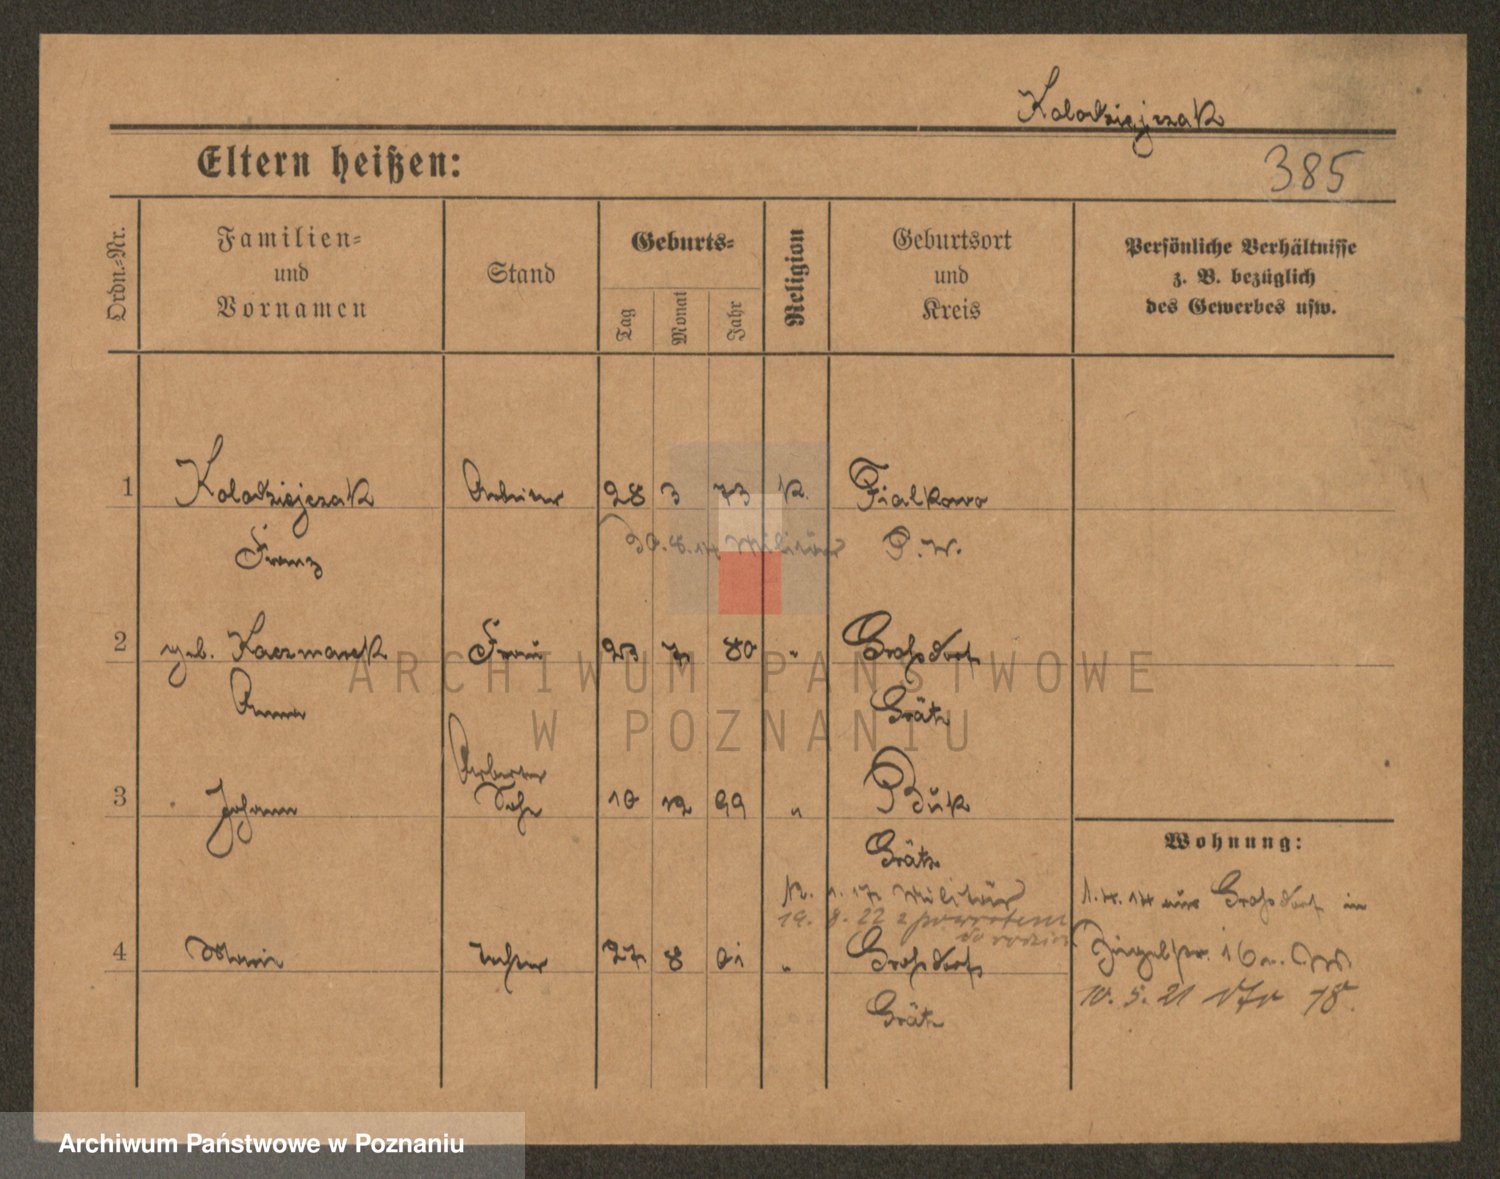 Kolodziejczak
Eltern heißen:
385
Ordn.-Nr.
Familien-
und
Vornamen
Stand
Geburts-
Tag
Monat
Jahr
Religion
Geburtsort
und
Kreis
Persönliche Verhältnisse
z. B. bezüglich
des Gewerbes usw.
1 Kolodziejczak Arbeiter 28 3 73 K. Fialkowo
Franz 30.8.14 Militär P. W.
2 geb. Kaczmarek Frau 23 7 80 " Großdorf
Anna Grätz
Arbeiter
3 Johann Sohn 10 12 99 " Buk
Grätz
Wohnung:
1. 17 Militär
19. 8. 22 z powrotem
do rodziny
1.4.14 aus Großdorf in
4 Marie Tochter 27 8 01 " Großdorf
10. 5. 21 18
Grätz
ARCHIWUM PAŃSTWOWE
W POZNANIU
Archiwum Państwowe w Poznaniu